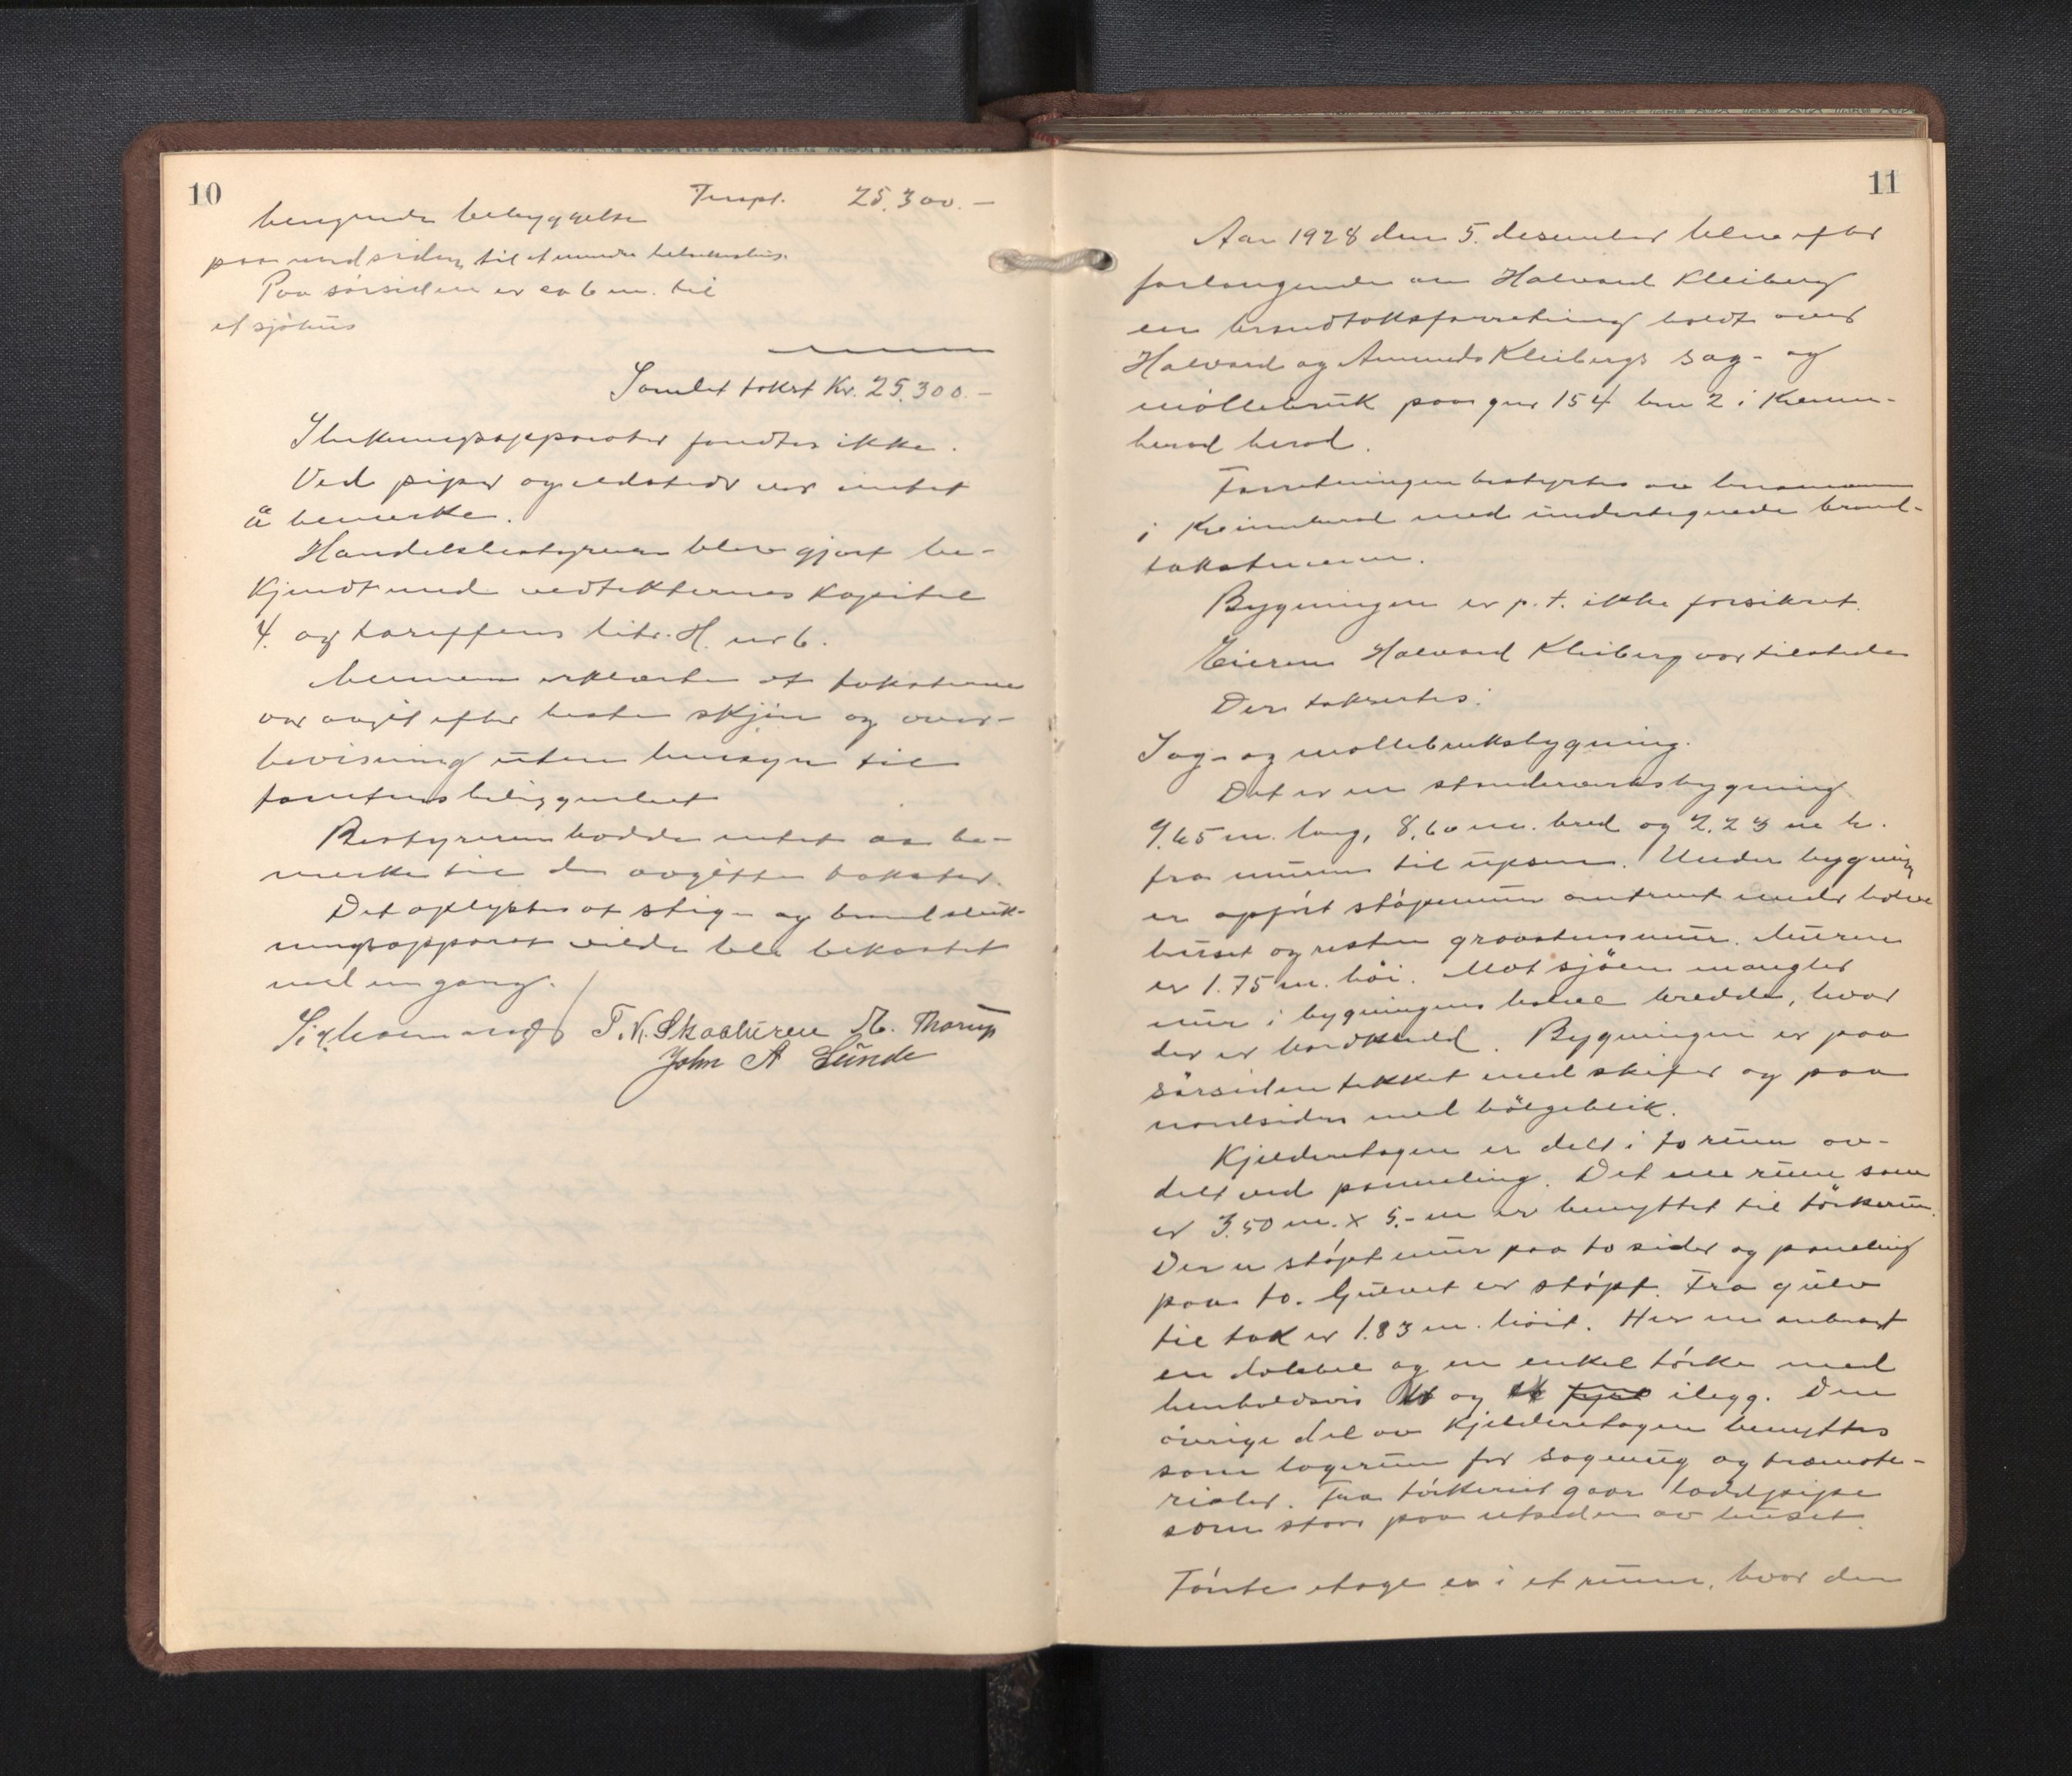 10
Transp. 25.300.-
bebyggelse
paa nordsiden til et mindre
Paa sørsiden er ca 6 m. til
et sjøhus
Samlet takst Kr. 25.300.-
Slukningsapparater fandtes ikke.
Ved piper og ildsteder var intet
å bemerke.
Handelsbestyreren blev gjort be-
kjendt med vedtekternes kapitel
4. og tariffens litr. H. nr 6.
Mennene erklærte at taksterne
var avgit efter beste skjøn og over-
bevisning uten hensyn til
Bestyreren hadde intet aa be-
merke til de avgitte takster.
Det oplystes at stige og brandsluk-
ningsapparat vilde bli bekostet
med en gang.
T. N. Skaaluren M. Thorup
John A Lunde
11
Aar 1928 den 5. desember blev efter
forlangende av Halvard Kleiberg
en brandtakstforretning holdt over
Halvard og Amunds Kleibergs sag- og
møllebruk paa gnr 154 bnr 2 i Kvinn-
herad herad.
Forretningen bestyrtes av lensmannen
i Kvinnherad med undertegnede brand-
takstmenn.
Bygningen er p.t. ikke forsikret.
Eieren Halvard Kleiberg var tilstede
Der takseretes:
Sag- og møllebruksbygning.
Det er en standerverksbygning
9.65 m. lang, 8.60 m. bred og 2.23 m h.
fra muren til upsen. Under bygning
er opført støpemur omtrent under halve
huset og resten graastensmur. Muren
er 1.75 m. høi. Mot sjøen mangler
mur i bygningens halve bredde, hvor
der er bordkledd. Bygningen er paa
sørsiden tekket med skifer og paa
nordsiden med bölgeblik.
Kjelderetagen er delt i to rum av-
delt ved panneling. Det ene rum som
er 3.50 m. x 5.- m er benyttet til tørkerum.
Der er støpt mur paa to sider og paneling
paa to. Gulvet er støpt. Fra gulv
til tak er 1.83 m. høit. Her er anbragt
en dobbel og en enkel tørke med
henholdsvis og ilegg. Den
øvrige del av Kjelderetagen benyttes
som lagerum for sagmug og træmate-
rialer. Fra tørkerumet gaar
som staar paa utsiden av huset.
Første etage er i et rum, hvor den